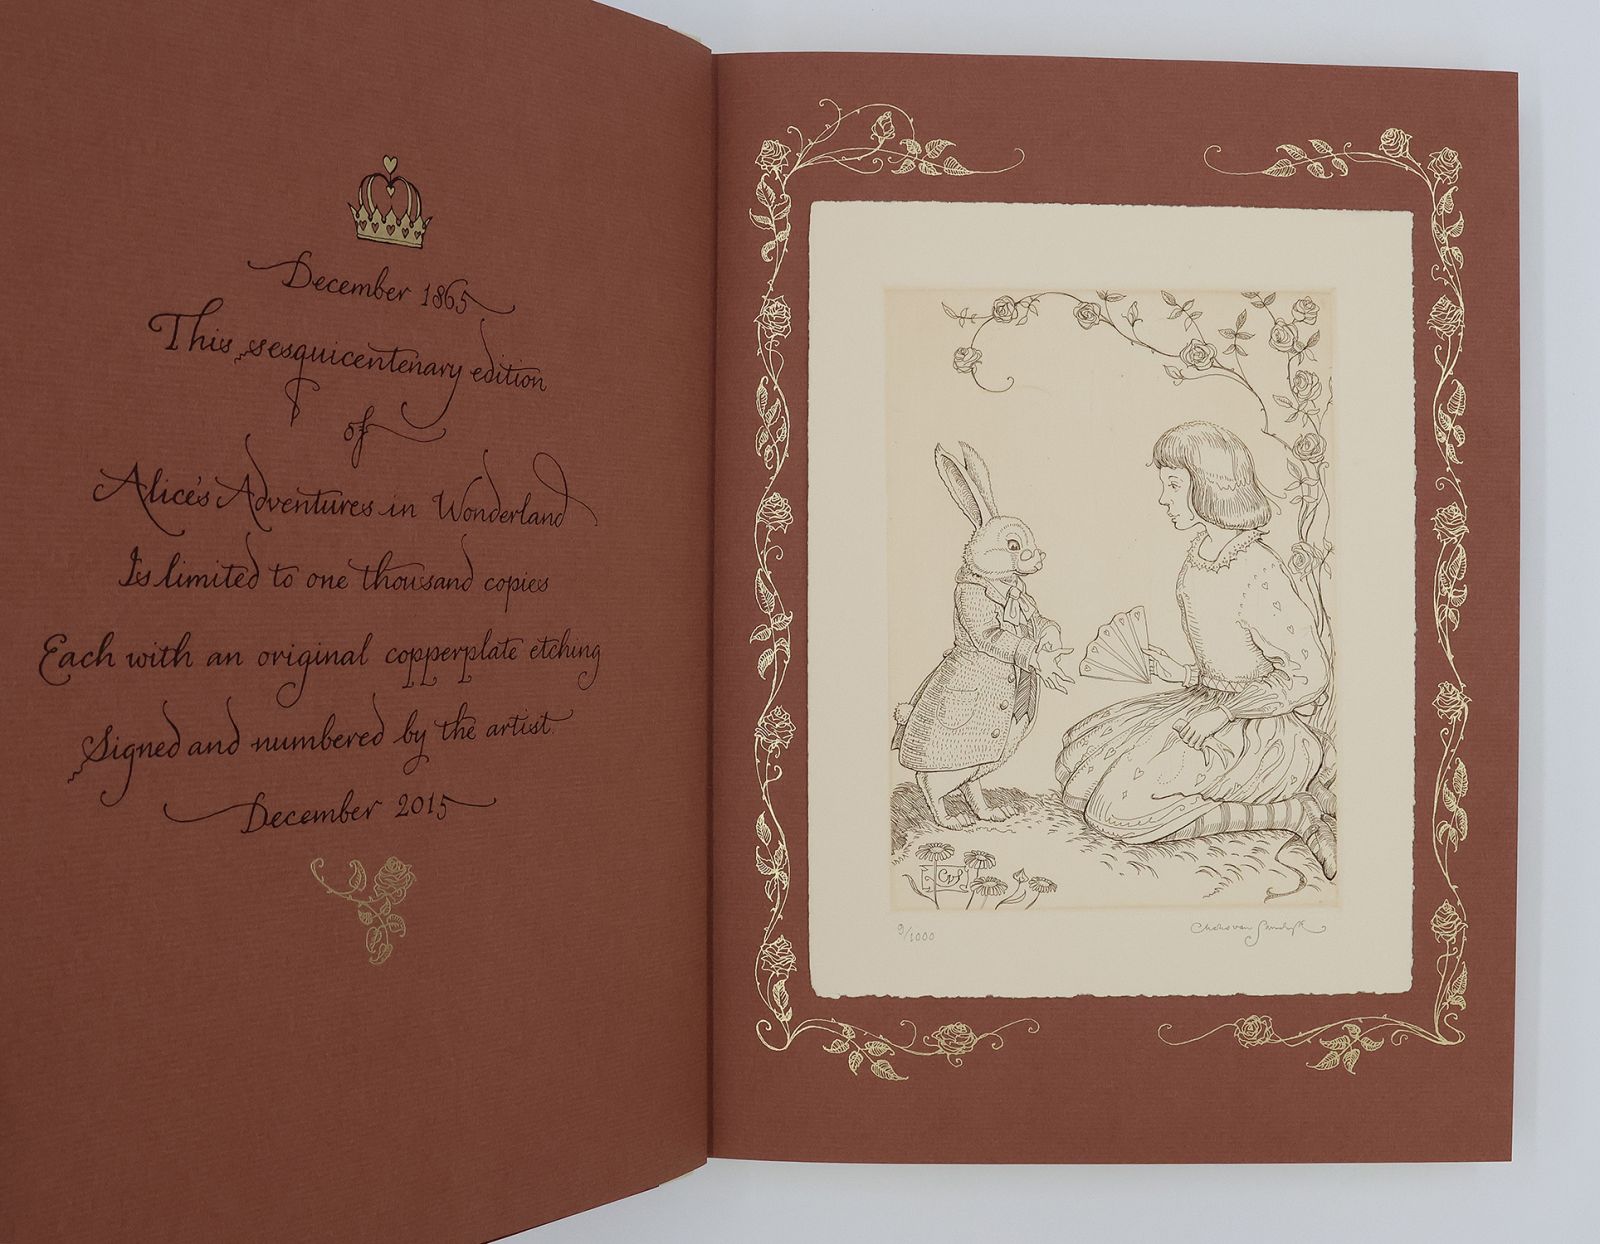 December 1865
This sesquicentenary edition
of
Alice's Adventures in Wonderland
Is limited to one thousand copies
Each with an original copperplate etching
Signed and numbered by the artist.
December 2015
CvS
9/1000
Charles van Sandwyk